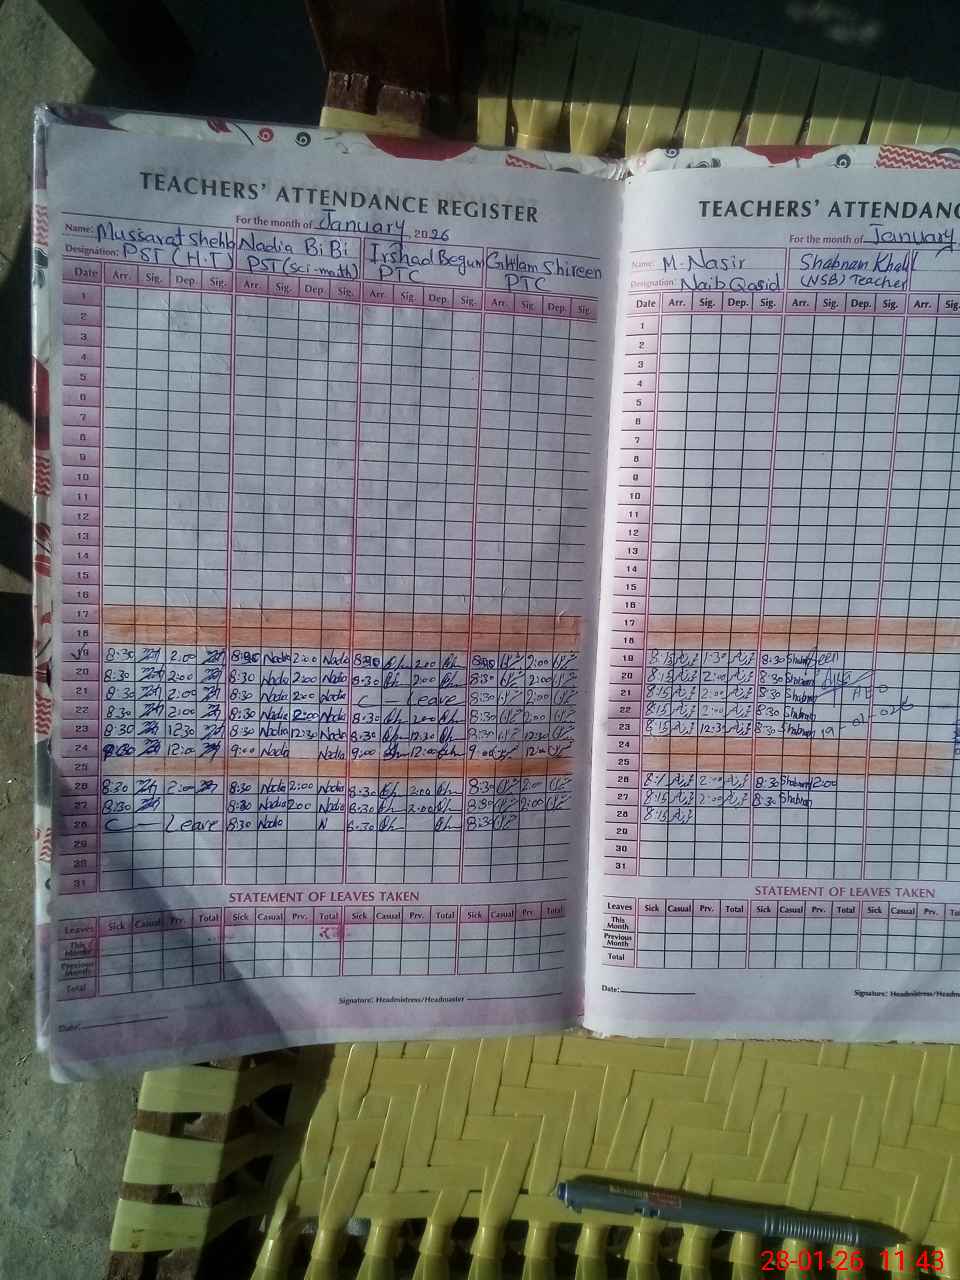 TEACHERS' ATTENDANCE REGISTER
For the month of January 2026
Name: Mussarat Shehb Nadia BiBi Irshad Begum Ghulam Shireen
Designation: PST (H.T) PST (sci-math) PTC PTC
Date Arr. Sig. Dep. Sig. Arr. Sig. Dep. Sig. Arr. Sig. Dep. Sig. Arr. Sig. Dep. Sig.
1
2
3
4
5
6
7
8
9
10
11
12
13
14
15
16
17
18
19 8:30 2:00 8:30 Nadia 2:00 Nadia 8:30 2:00 8:30 2:00
20 8:30 2:00 8:30 Nadia 2:00 Nadia 8:30 2:00 8:30 2:00
21 8:30 2:00 8:30 Nadia 2:00 Nadia C — Leave 8:30 2:00
22 8:30 2:00 8:30 Nadia 2:00 Nadia 8:30 2:00 8:30 2:00
23 8:30 12:30 8:30 Nadia 12:30 Nadia 8:30 12:30 8:30 12:30
24 12:00 9:00 Nadia Nadia 9:00 12:00 9:00 12:00
25
26 8:30 2:00 8:30 Nadia 2:00 Nadia 8:30 2:00 8:30 2:00
27 8:30 8:30 Nadia 2:00 Nadia 8:30 2:00 8:30 2:00
28 C — Leave 8:30 Nadia N 8:30 8:30
29
30
31
STATEMENT OF LEAVES TAKEN
Leaves Sick Casual Prv. Total Sick Casual Prv. Total Sick Casual Prv. Total Sick Casual Prv. Total
This Month
Previous Month
Total
Signature: Headmistress/Headmaster
Date:
TEACHERS' ATTENDANC
For the month of January
Name: M-Nasir Shabnam Khalil
Designation: Naib Qasid (NSB) Teacher
Date Arr. Sig. Dep. Sig. Arr. Sig. Dep. Sig. Arr. Sig.
1
2
3
4
5
6
7
8
9
10
11
12
13
14
15
16
17
18
19 8:15 1:30 8:30 Shabnam
20 8:15 2:00 8:30 Shabnam
21 8:15 2:00 8:30 Shabnam
22 8:15 2:00 8:30 Shabnam
23 8:15 12:30 8:30 Shabnam
24
25
26 2:00 8:30 Shabnam 2:00
27 8:15 2:00 8:30 Shabnam
28 8:15
29
30
31
STATEMENT OF LEAVES TAKEN
Leaves Sick Casual Prv. Total Sick Casual Prv. Total Sick Casual
This Month
Previous Month
Total
Date:
Signature: Headmistress/Headm
28-01-26 11:43